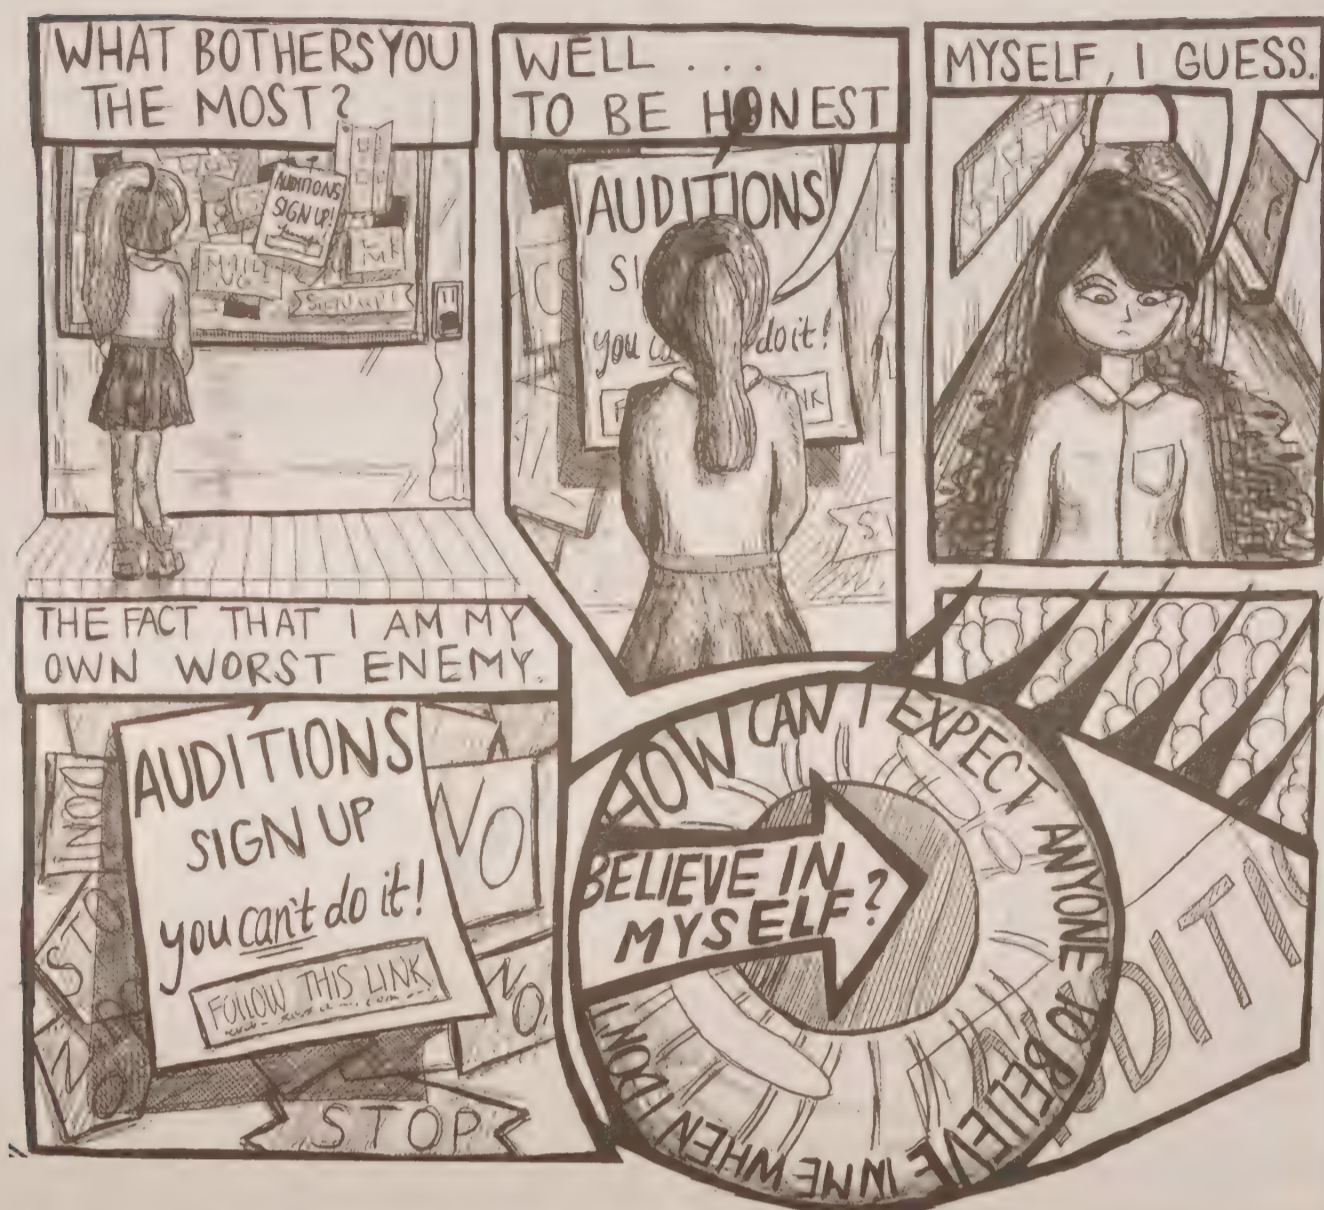 WHAT BOTHERS YOU
THE MOST?
AUDITIONS
SIGN UP!
SIGN UP!
WELL ...
TO BE HONEST
AUDITIONS
SI
you ca
do it!
F
NK
MYSELF, I GUESS.
THE FACT THAT I AM MY
OWN WORST ENEMY.
AUDITIONS
SIGN UP
you can't do it!
FOLLOW THIS LINK
NO
NO
STOP
NO
NO
STOP
HOW CAN I EXPECT ANYONE TO BELIEVE IN ME WHEN I DON'T
BELIEVE IN
MYSELF?
UDITI